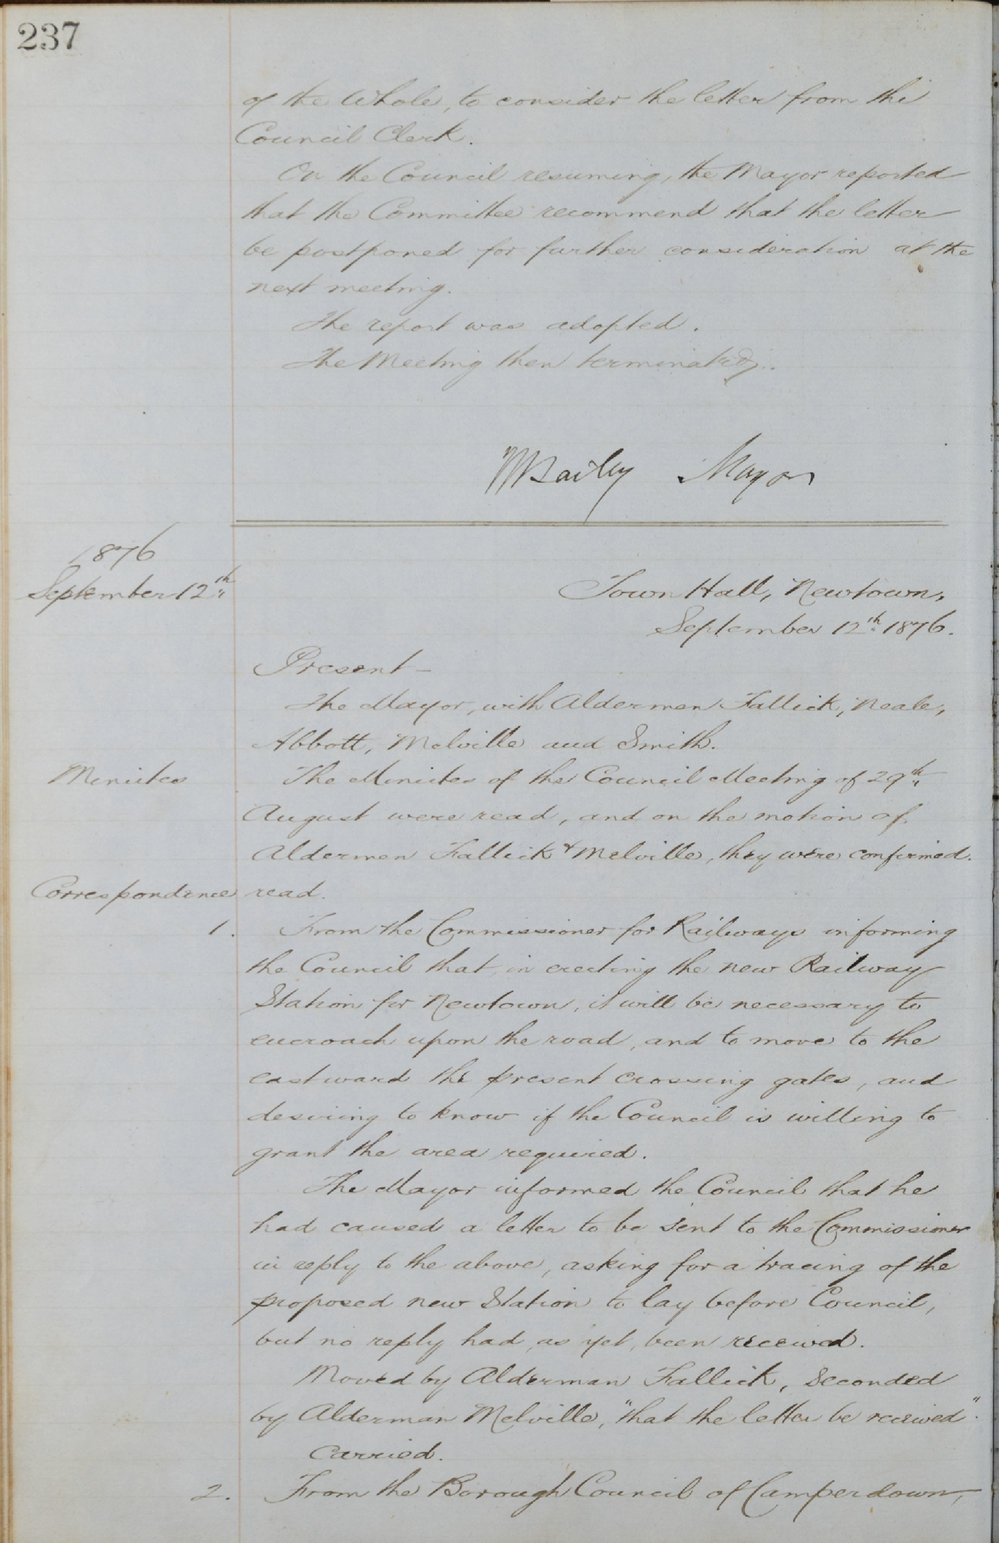 237
of the whole, to consider the letter from the
Council Clerk.
On the Council resuming, the Mayor reported
that the Committee recommend that the letter
be postponed for further consideration at the
next meeting.
The report was adopted.
The Meeting then terminated.
WBailey Mayor
1876
September 12th
Town Hall, Newtown,
September 12th 1876.
Present—
The Mayor, with Aldermen Fallick, Neale,
Abbott, Melville and Smith.
Minutes The Minutes of the Council Meeting of 29th
August were read, and on the motion of
Aldermen Fallick & Melville, they were confirmed.
Correspondence read.
1. From the Commissioner for Railways informing
the Council that, in erecting the new Railway
Station for Newtown, it will be necessary to
encroach upon the road, and to move to the
eastward the present crossing gates, and
desiring to know if the Council is willing to
grant the area required.
The Mayor informed the Council that he
had caused a letter to be sent to the Commissioner
in reply to the above, asking for a tracing of the
proposed new Station to lay before Council,
but no reply had, as yet, been received.
Moved by Alderman Fallick, Seconded
by Alderman Melville, "that the letter be received".
Carried.
2. From the Borough Council of Camperdown,